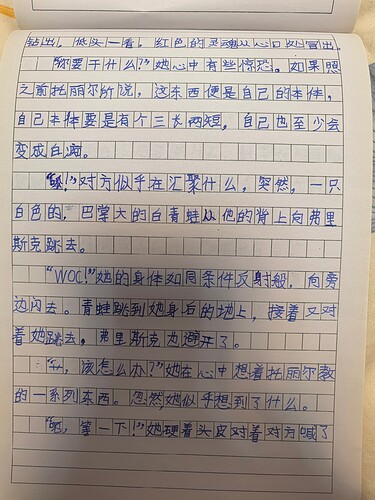 钻出，低头一看，红色的灵魂从心口处冒出。
“你要干什么？”她心中有些惊恐。如果照
之前托丽尔所说，这东西便是自己的本体，
自己本体要是有个三长两短，自己也至少会
变成白痴。
“呱！”对方似乎在汇聚什么，突然，一只
白色的，巴掌大的白青蛙从他的背上向弗里
斯克跳去。
“WOC！”她的身体如同条件反射般，向旁
边闪去。青蛙跳到她身后的地上，接着又对
着她跳去。弗里斯克也避开了。
“该怎么办？”她在心中想着托丽尔教
的一系列东西。忽然，她似乎想到了什么。
“呃，等一下！”她硬着头皮对着对方喊了